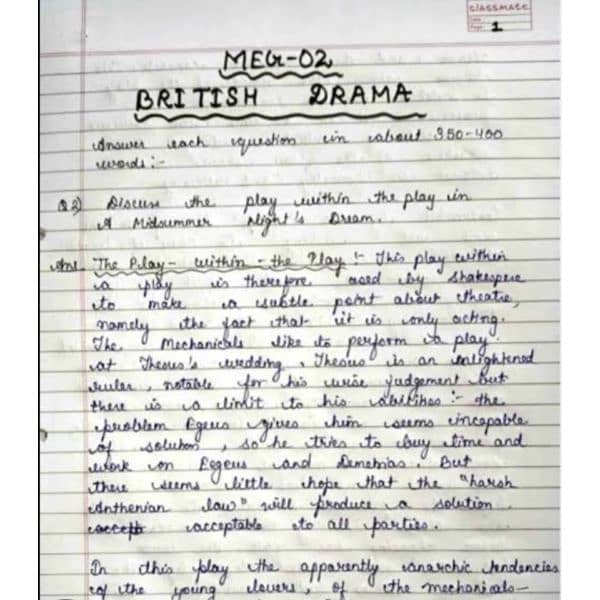 CLASSMATE
Date
Page 1
MEG-02
BRITISH DRAMA
Answer each question in about 350-400
words:-
Q 2) Discuss the play within the play in
A Midsummer Night's Dream.
Ans. The Play- within - the Play :- This play within
a play is therefore used by Shakespere
to make a subtle point about theatre,
namely the fact that it is only acting.
The Mechanicals like to perform a play
at Theseus's wedding. Theseus is an enlightened
ruler, notable for his wise judgement but
there is a limit to his abilities :- the
problem Egeus gives him seems incapable
of solution, so he tries to buy time and
work on Eegeus and Demetrias. But
there seems little hope that the "harsh
Anthenian law" will produce a solution
accept acceptable to all parties.
In this play the apparently anarchic tendencies
of the young lovers, of the mechanicals-